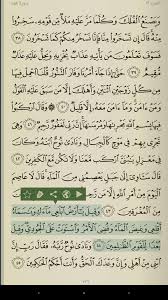 وَيَصْنَعُ ٱلْفُلْكَ وَكُلَّمَا مَرَّ عَلَيْهِ مَلَأٌ مِّن قَوْمِهِۦ سَخِرُوا۟ مِنْهُ
قَالَ إِن تَسْخَرُوا۟ مِنَّا فَإِنَّا نَسْخَرُ مِنكُمْ كَمَا تَسْخَرُونَ ٣٨
فَسَوْفَ تَعْلَمُونَ مَن يَأْتِيهِ عَذَابٌ يُخْزِيهِ وَيَحِلُّ عَلَيْهِ عَذَابٌ
مُّقِيمٌ ٣٩ حَتَّىٰٓ إِذَا جَآءَ أَمْرُنَا وَفَارَ ٱلتَّنُّورُ قُلْنَا ٱحْمِلْ فِيهَا
مِن كُلٍّ زَوْجَيْنِ ٱثْنَيْنِ وَأَهْلَكَ إِلَّا مَن سَبَقَ عَلَيْهِ ٱلْقَوْلُ
وَمَنْ ءَامَنَ وَمَآ ءَامَنَ مَعَهُۥٓ إِلَّا قَلِيلٌ ٤٠ وَقَالَ ٱرْكَبُوا۟
فِيهَا بِسْمِ ٱللَّهِ مَجْر۪ىٰهَا وَمُرْسَىٰهَآ إِنَّ رَبِّى لَغَفُورٌ رَّحِيمٌ ٤١
وَهِىَ تَجْرِى بِهِمْ فِى مَوْجٍ كَٱلْجِبَالِ وَنَادَىٰ نُوحٌ ٱبْنَهُۥ وَكَانَ
فِى مَعْزِلٍ يَٰبُنَىَّ ٱرْكَب مَّعَنَا وَلَا تَكُن مَّعَ ٱلْكَٰفِرِينَ ٤٢
قَالَ سَـَٔاوِىٓ إِلَىٰ جَبَلٍ يَعْصِمُنِى مِنَ ٱلْمَآءِ قَالَ لَا عَاصِمَ
ٱلْيَوْمَ مِنْ أَمْرِ ٱللَّهِ إِلَّا مَن رَّحِمَ
مِنَ ٱلْمُغْرَقِينَ ٤٣ وَقِيلَ يَٰٓأَرْضُ ٱبْلَعِى مَآءَكِ وَيَٰسَمَآءُ
أَقْلِعِى وَغِيضَ ٱلْمَآءُ وَقُضِىَ ٱلْأَمْرُ وَٱسْتَوَتْ عَلَى ٱلْجُودِىِّ وَقِيلَ
بُعْدًا لِّلْقَوْمِ ٱلظَّٰلِمِينَ ٤٤ وَنَادَىٰ نُوحٌ رَّبَّهُۥ فَقَالَ رَبِّ
إِنَّ ٱبْنِى مِنْ أَهْلِى وَإِنَّ وَعْدَكَ ٱلْحَقُّ وَأَنتَ أَحْكَمُ ٱلْحَٰكِمِينَ ٤٥
٢٢٦